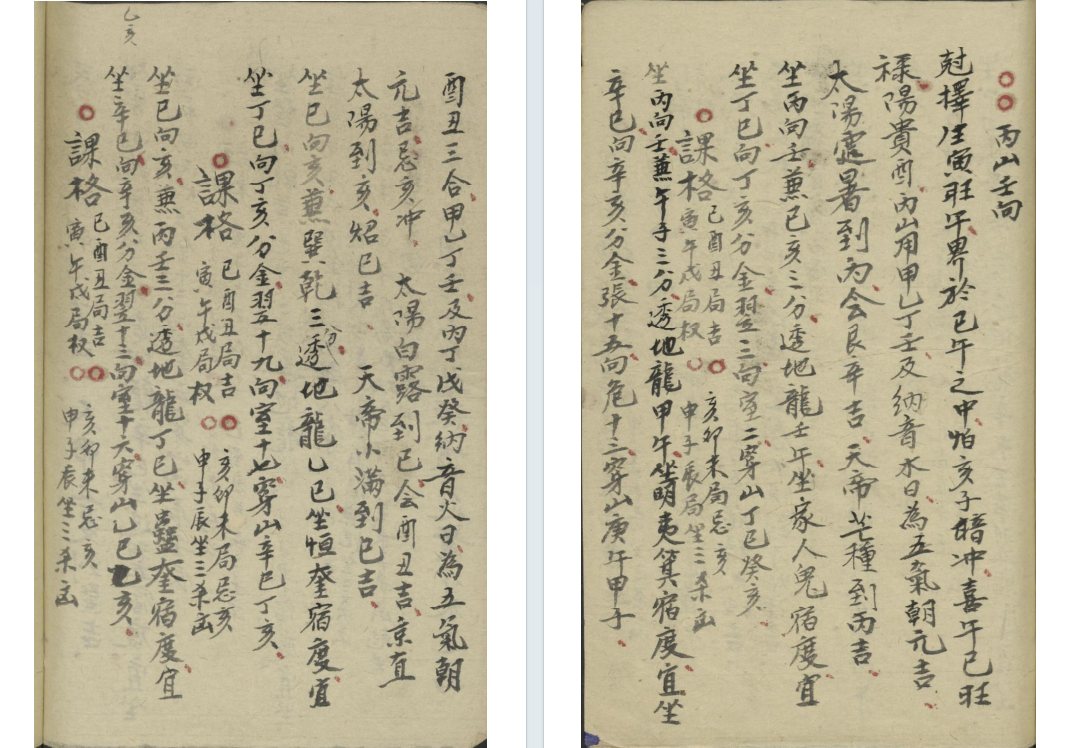 丙山壬向
尅擇生寅旺午界於巳午之中怕亥子暗冲喜午巳旺
祿陽貴酉丙山用甲乙丁壬及納音水日為五氣朝元吉
太陽處暑到丙会艮辛吉天帝芒種到丙吉
坐丙向壬兼巳亥三分透地龍壬午坐家人鬼宿度宜
坐丁巳向丁亥分金翌三向室二穿山丁巳癸亥
課格
巳酉丑局吉
寅午戌局权
亥卯未局忌亥
申子辰局坐三杀凶
坐丙向壬兼午子三分透地龍甲午坐明夷箕宿度宜坐
辛巳向辛亥分金張十五向危十三穿山庚午甲子
乙亥
酉丑三合甲乙丁壬及丙丁戊癸納音火日為五氣朝
元吉忌亥冲 太陽白露到巳会酉丑吉京直
太陽到亥炤巳吉 天帝小满到巳吉
坐巳向亥兼巽乾三分透地龍乙巳坐恒奎宿度宜
坐丁巳向丁亥分金翌十九向室十七穿山辛巳丁亥
課格
巳酉丑局吉
寅午戌局权
亥卯未局忌亥
申子辰坐三杀凶
坐巳向亥兼丙壬三分透地龍丁巳坐蠱奎宿度宜
坐辛巳向辛亥分金翌十三向室十六穿山乙巳乙亥
課格
巳酉丑局吉
寅午戌局权
亥卯未忌亥
申子辰坐三杀凶